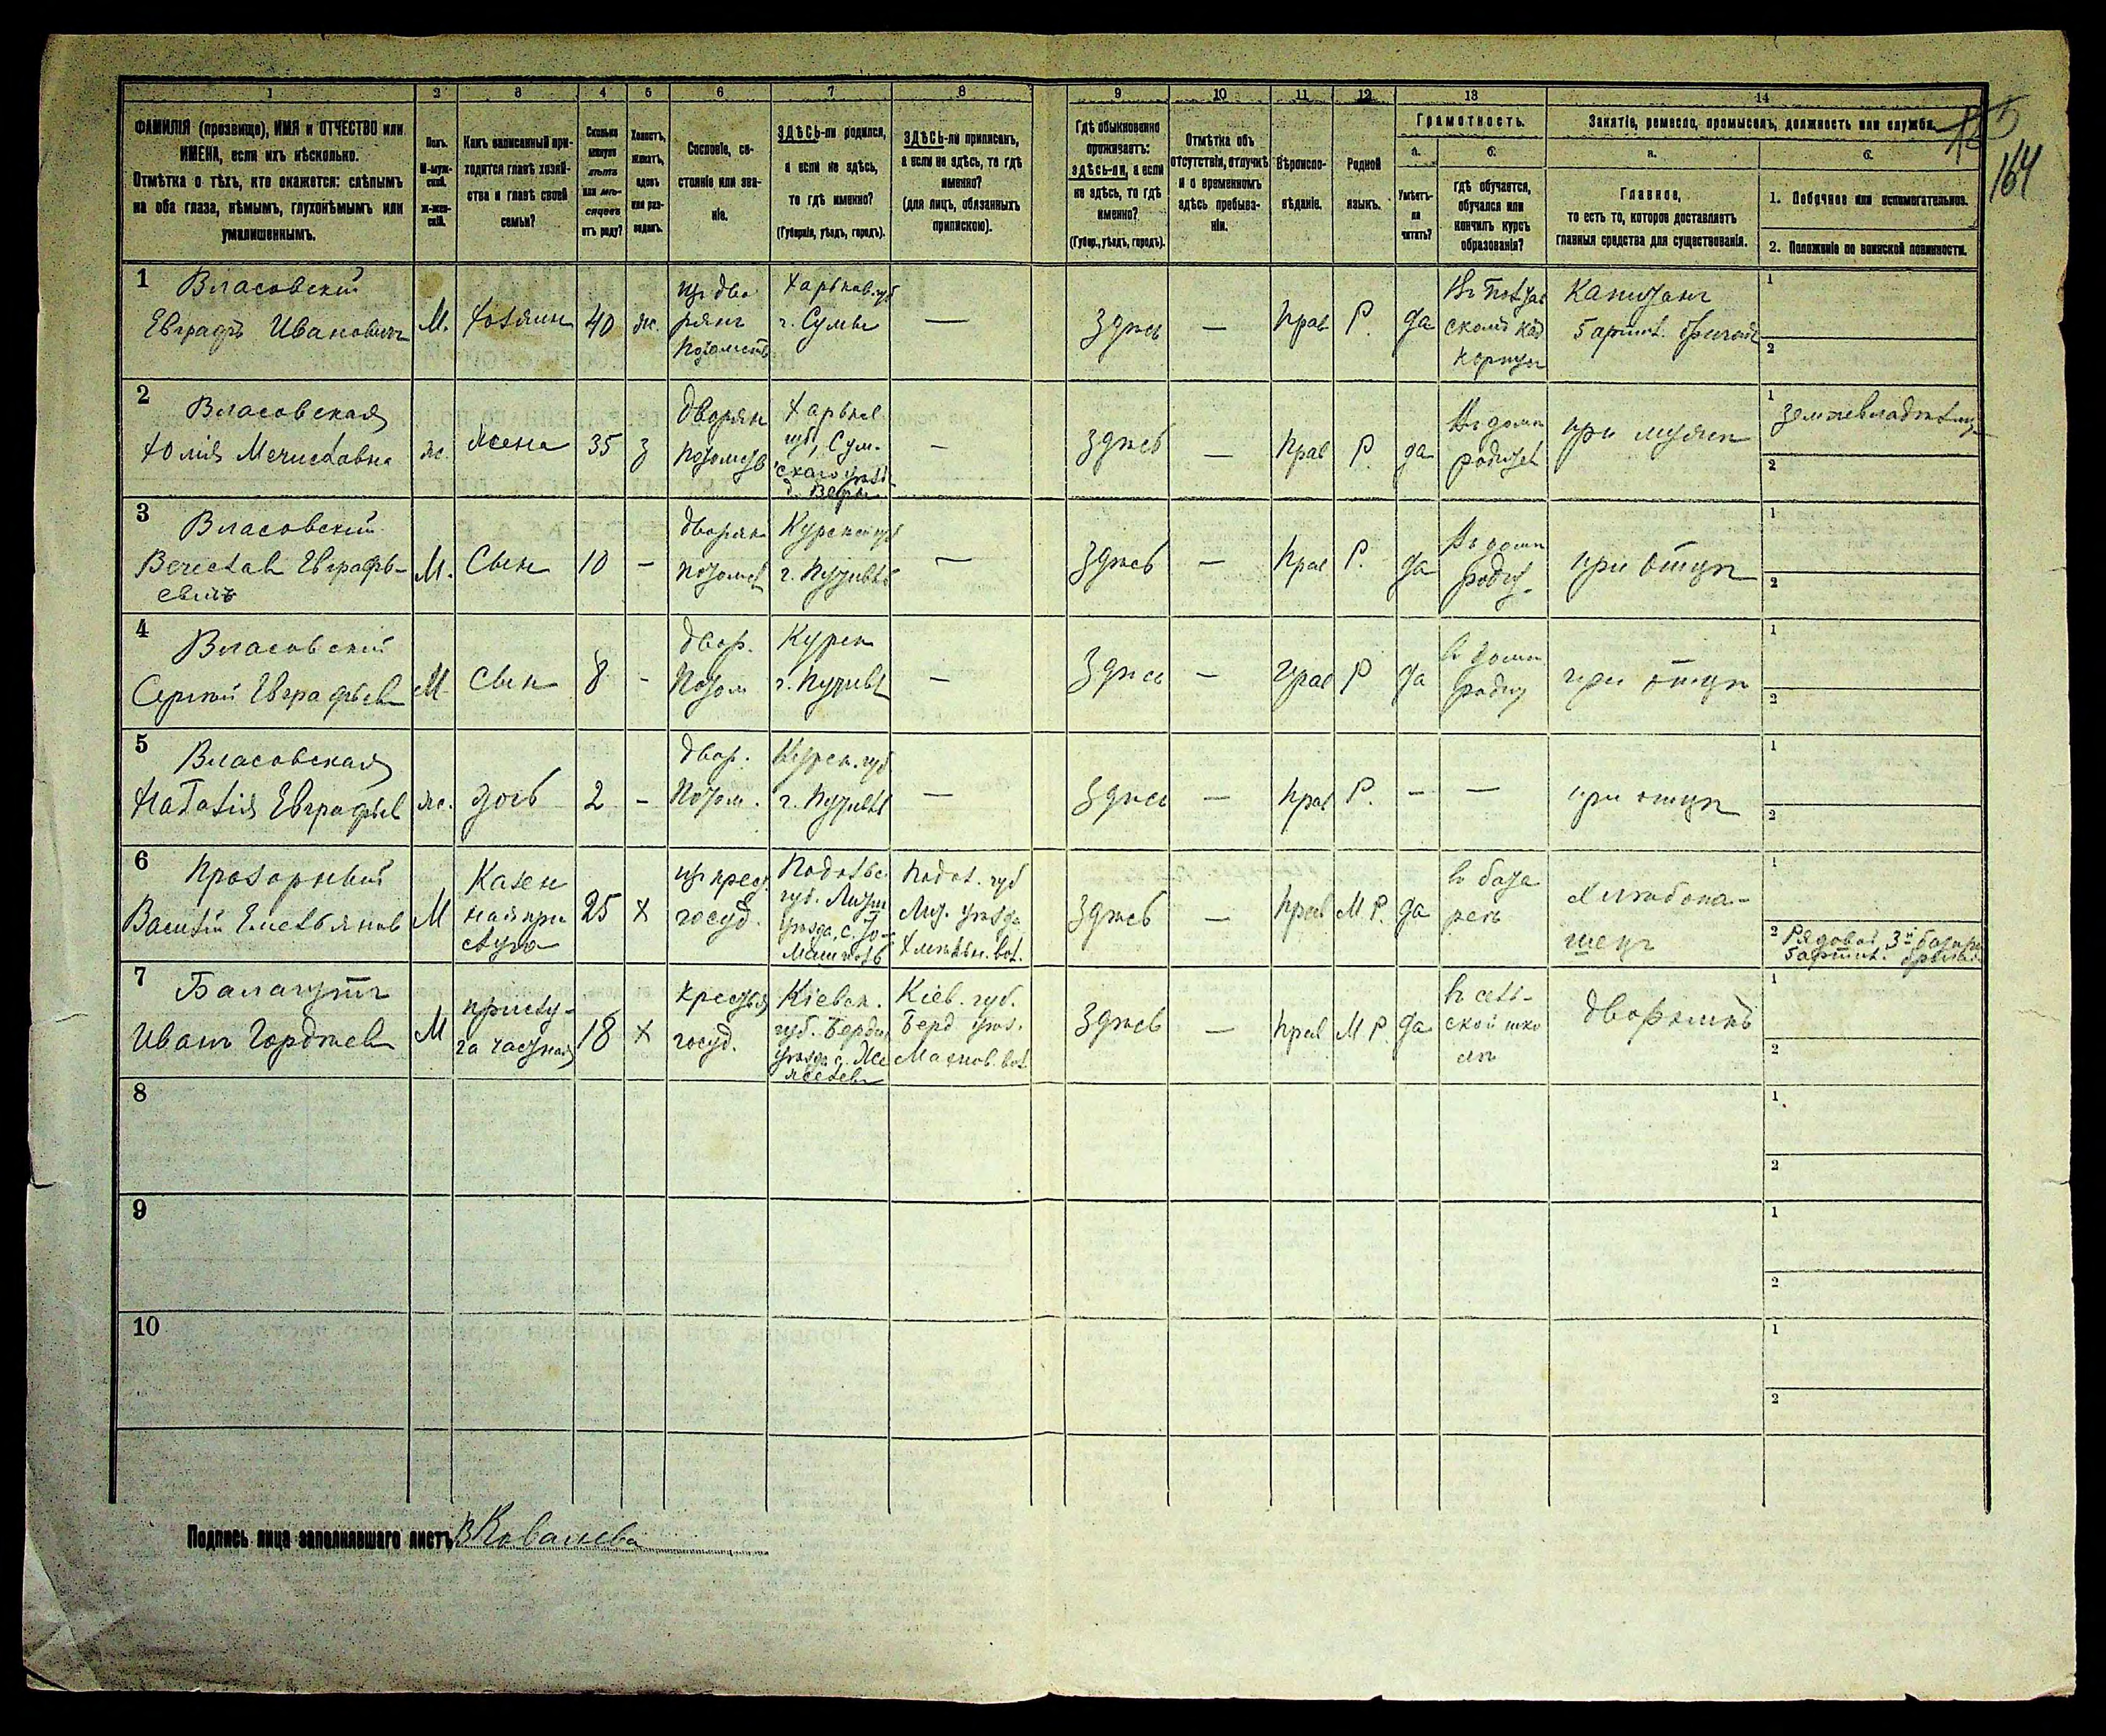 1 2 3 4 5 6 7 8 9 10 11 12 13 14
ФАМИЛІЯ (прозвище), ИМЯ и ОТЧЕСТВО или
ИМЕНА, если ихъ нѣсколько.
Отмѣтка о тѣхъ, кто окажется: слѣпымъ
на оба глаза, нѣмымъ, глухонѣмымъ или
умалишеннымъ.
Полъ.
М-муж-
ской.
Ж-жен-
скій.
Какъ записанный при-
ходится главѣ хозяй-
ства и главѣ своей
семьи?
Сколько
минуло
лѣтъ
или мѣ-
сяцевъ
отъ роду?
Холостъ,
женатъ,
вдовъ
или раз-
веденъ.
Сословіе, со-
стояніе или зва-
ніе.
ЗДѢСЬ-ли родился,
а если не здѣсь,
то гдѣ именно?
(Губернія, уѣздъ, городъ).
ЗДѢСЬ-ли приписанъ,
а если не здѣсь, то гдѣ
именно?
(для лицъ, обязанныхъ
припискою).
Гдѣ обыкновенно
проживаетъ:
здѣсь-ли, а если
не здѣсь, то гдѣ
именно?
(Губер., уѣздъ, городъ).
Отмѣтка объ
отсутствіи, отлучкѣ
и о временномъ
здѣсь пребыва-
ніи.
Вѣроиспо-
вѣданіе.
Родной
языкъ.
Грамотность.
а.
Умѣетъ-
ли
читать?
б.
гдѣ обучается,
обучался или
кончилъ курсъ
образованія?
Занятіе, ремесло, промыселъ, должность или служба.
а.
Главное,
то есть то, которое доставляетъ
главныя средства для существованія.
б.
1. Побочное или вспомогательное.
2. Положеніе по воинской повинности.
164
1 Власовский
Евграфъ Ивановичъ
М.
хозяин
40
ж.
из дво
рянъ
потомств
Харьков. губ
г. Сумы
—
Здѣсь
—
прав
Р.
да
Въ Полтав
скомъ кад
корпусѣ
Капитанъ
5 артил. бригады
1
2
2 Власовская
Юлія Мечиславна
ж.
жена
35
з
дворян
потомств
Харьков
губ, Сум-
скаго уѣзд
—
Здѣсь
—
прав
Р
да
Въ домѣ
родител
при мужѣ
1 землевладѣлица
2
3 Власовский
Вячеслав Еврафь-
евичъ
М.
Сын
10
—
дворян
потомст
Курской губ
г. Путивль
—
Здѣсь
—
прав
Р.
да
Въ домѣ
родит.
при отцѣ
1
2
4 Власовский
Сергѣй Евграфьев
М
сын
8
-
двор.
потом
Курск
г. Путивл
—
Здѣсь
—
прав
Р
да
въ домѣ
родит
при отцѣ
1
2
5 Власовская
Наталія Евграфьев
ж.
дочь
2
-
двор.
потом.
Курск. губ
г. Путивль
—
Здѣсь
—
прав
Р.
-
—
при отцѣ
1
2
6 Прозорный
Василій Емельянов
М
Казен
ная при
слуга
25
х
из крест
госуд.
Подольс.
губ. Литин
уѣзда, с.
Подол. губ
Лит. уѣзда
Хмѣльн. вол.
Здѣсь
—
прав
М.Р.
да
въ бата
реѣ
хлѣбопа-
шецъ
1
2 Рядовой 3й батареи
5 артил. бригады
7
Иванъ Гордѣев
М
прислу-
га частная
18
х
крестья
госуд.
Кіевск.
губ. Берди.
уѣзда с.
Кіев. губ.
Берд уѣз.
Махнов. вол
Здѣсь
—
прав
М Р.
да
въ сель-
ской шко
лѣ
дворникъ
1
2
8
1
2
9
1
2
10
1
2
Подпись лица заполнявшаго листъ В Ковалева